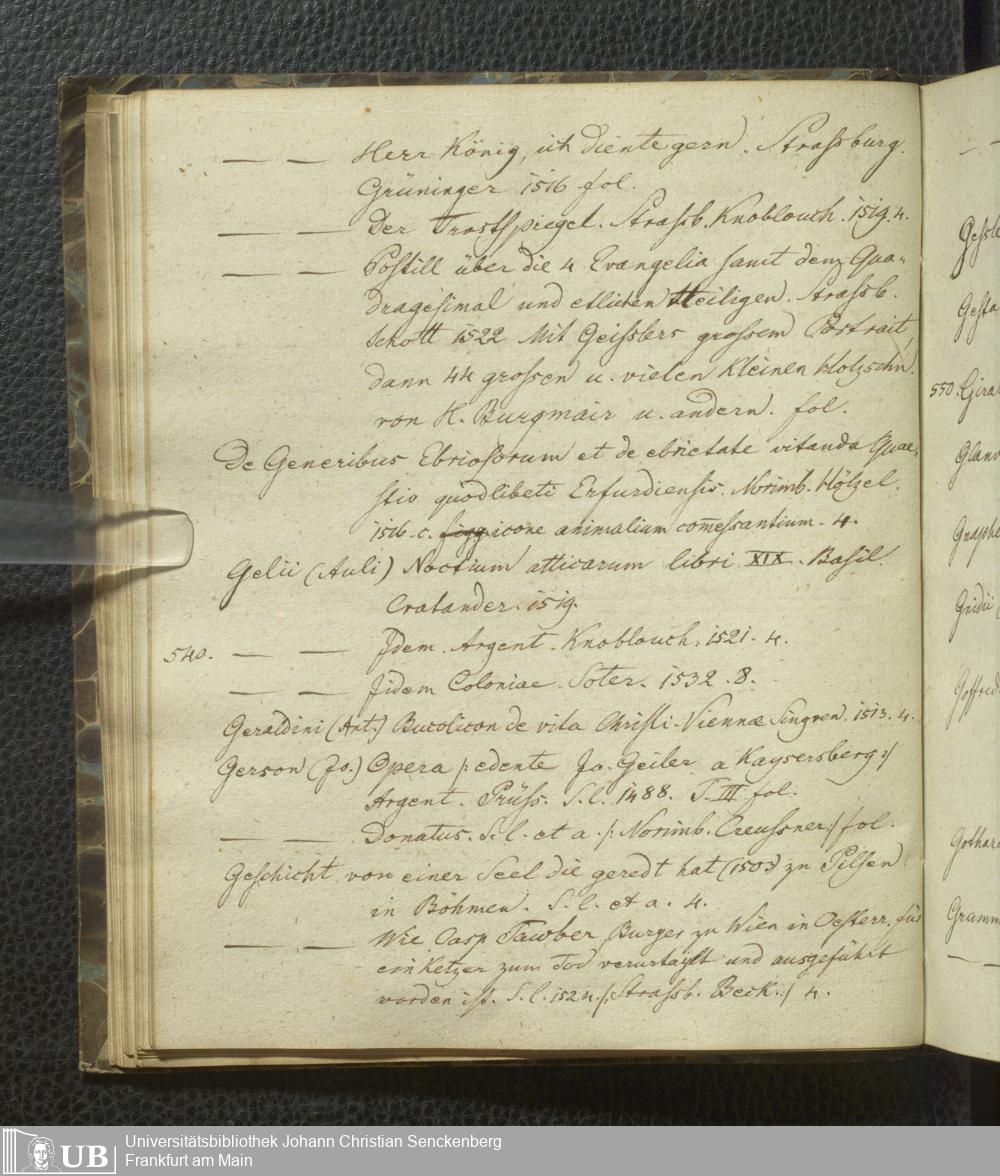 — — Herr König, ich diente gern. Straßburg.
Grüninger 1516 fol.
— — Der Trostspiegel. Straßb. Knoblouch. 1519. 4.
— — Postill über die 4 Evangelia samt dem Qua-
dragesimal und etlichen Heiligen. Straßb.
Schott 1522 Mit Geißlers großem Portrait,
dann 44 großen u. vielen kleinen Holzschn.
von H. Burgmair u. andern. fol.
De Generibus Ebriosorum et de ebrietate vitanda Quae-
stio quodlibeti Erfurdiensis. Norimb. Hölzel.
1516. c. icone animalium com̄essantium. 4.
Gelii (Auli) Noctium atticarum libri XIX. Basil.
Cratander. 1519.
540. — — Idem. Argent. Knoblouch. 1521. 4.
— — Iidem Coloniae. Soter. 1532. 8.
Geraldini (Ant.) Bucolicon de vita Christi. Viennae Singren. 1513. 4.
Gerson (Jo.) Opera /: edente Jo. Geiler a Kaysersberg :/
Argent. Prüß. S. l. 1488. T. III fol.
— — Donatus. S. l. et a. /: Norimb. Creussner :/ fol.
Geschicht von einer Seel die geredt hat (1503) zu Pilsen
in Böhmen. S. l. et a. 4.
— — Wie Casp Tawber, Burger zu Wien in Oesterr. für
ein Ketzer zum Tod verurtaylt und ausgeführt
worden ist. S. l. 1524. /: Straßb. Beck :/ 4.
550. Girar
Gothar
Gramm
UB Universitätsbibliothek Johann Christian Senckenberg
Frankfurt am Main